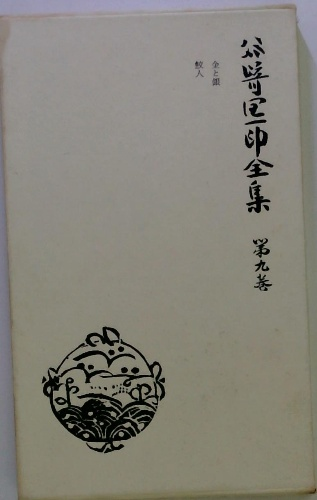 谷崎潤一郎全集 第九巻
金と銀
鮫人